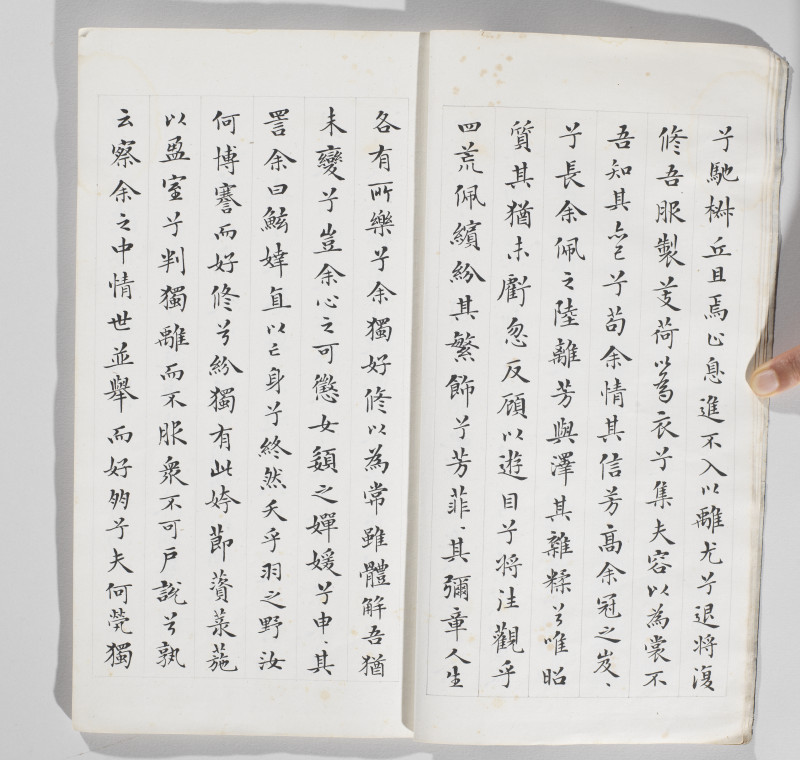 兮馳椒丘且焉止息進不入以離尤兮退將復
修吾服製芰荷以為衣兮集夫容以為裳不
吾知其亦已兮苟余情其信芳高余冠之岌〻
兮長余佩之陸離芳與澤其雜糅兮唯昭
質其猶未虧忽反顧以遊目兮將往觀乎
四荒佩繽紛其繁飾兮芳菲〻其彌章人生
各有所樂兮余獨好修以為常雖體解吾猶
未變兮豈余心之可懲女嬃之嬋媛兮申〻其
詈余曰鮌婞直以亡身兮終然夭乎羽之野汝
何博謇而好修兮紛獨有此姱節薋菉葹
以盈室兮判獨離而不服眾不可戶說兮孰
云察余之中情世並舉而好朋兮夫何煢獨